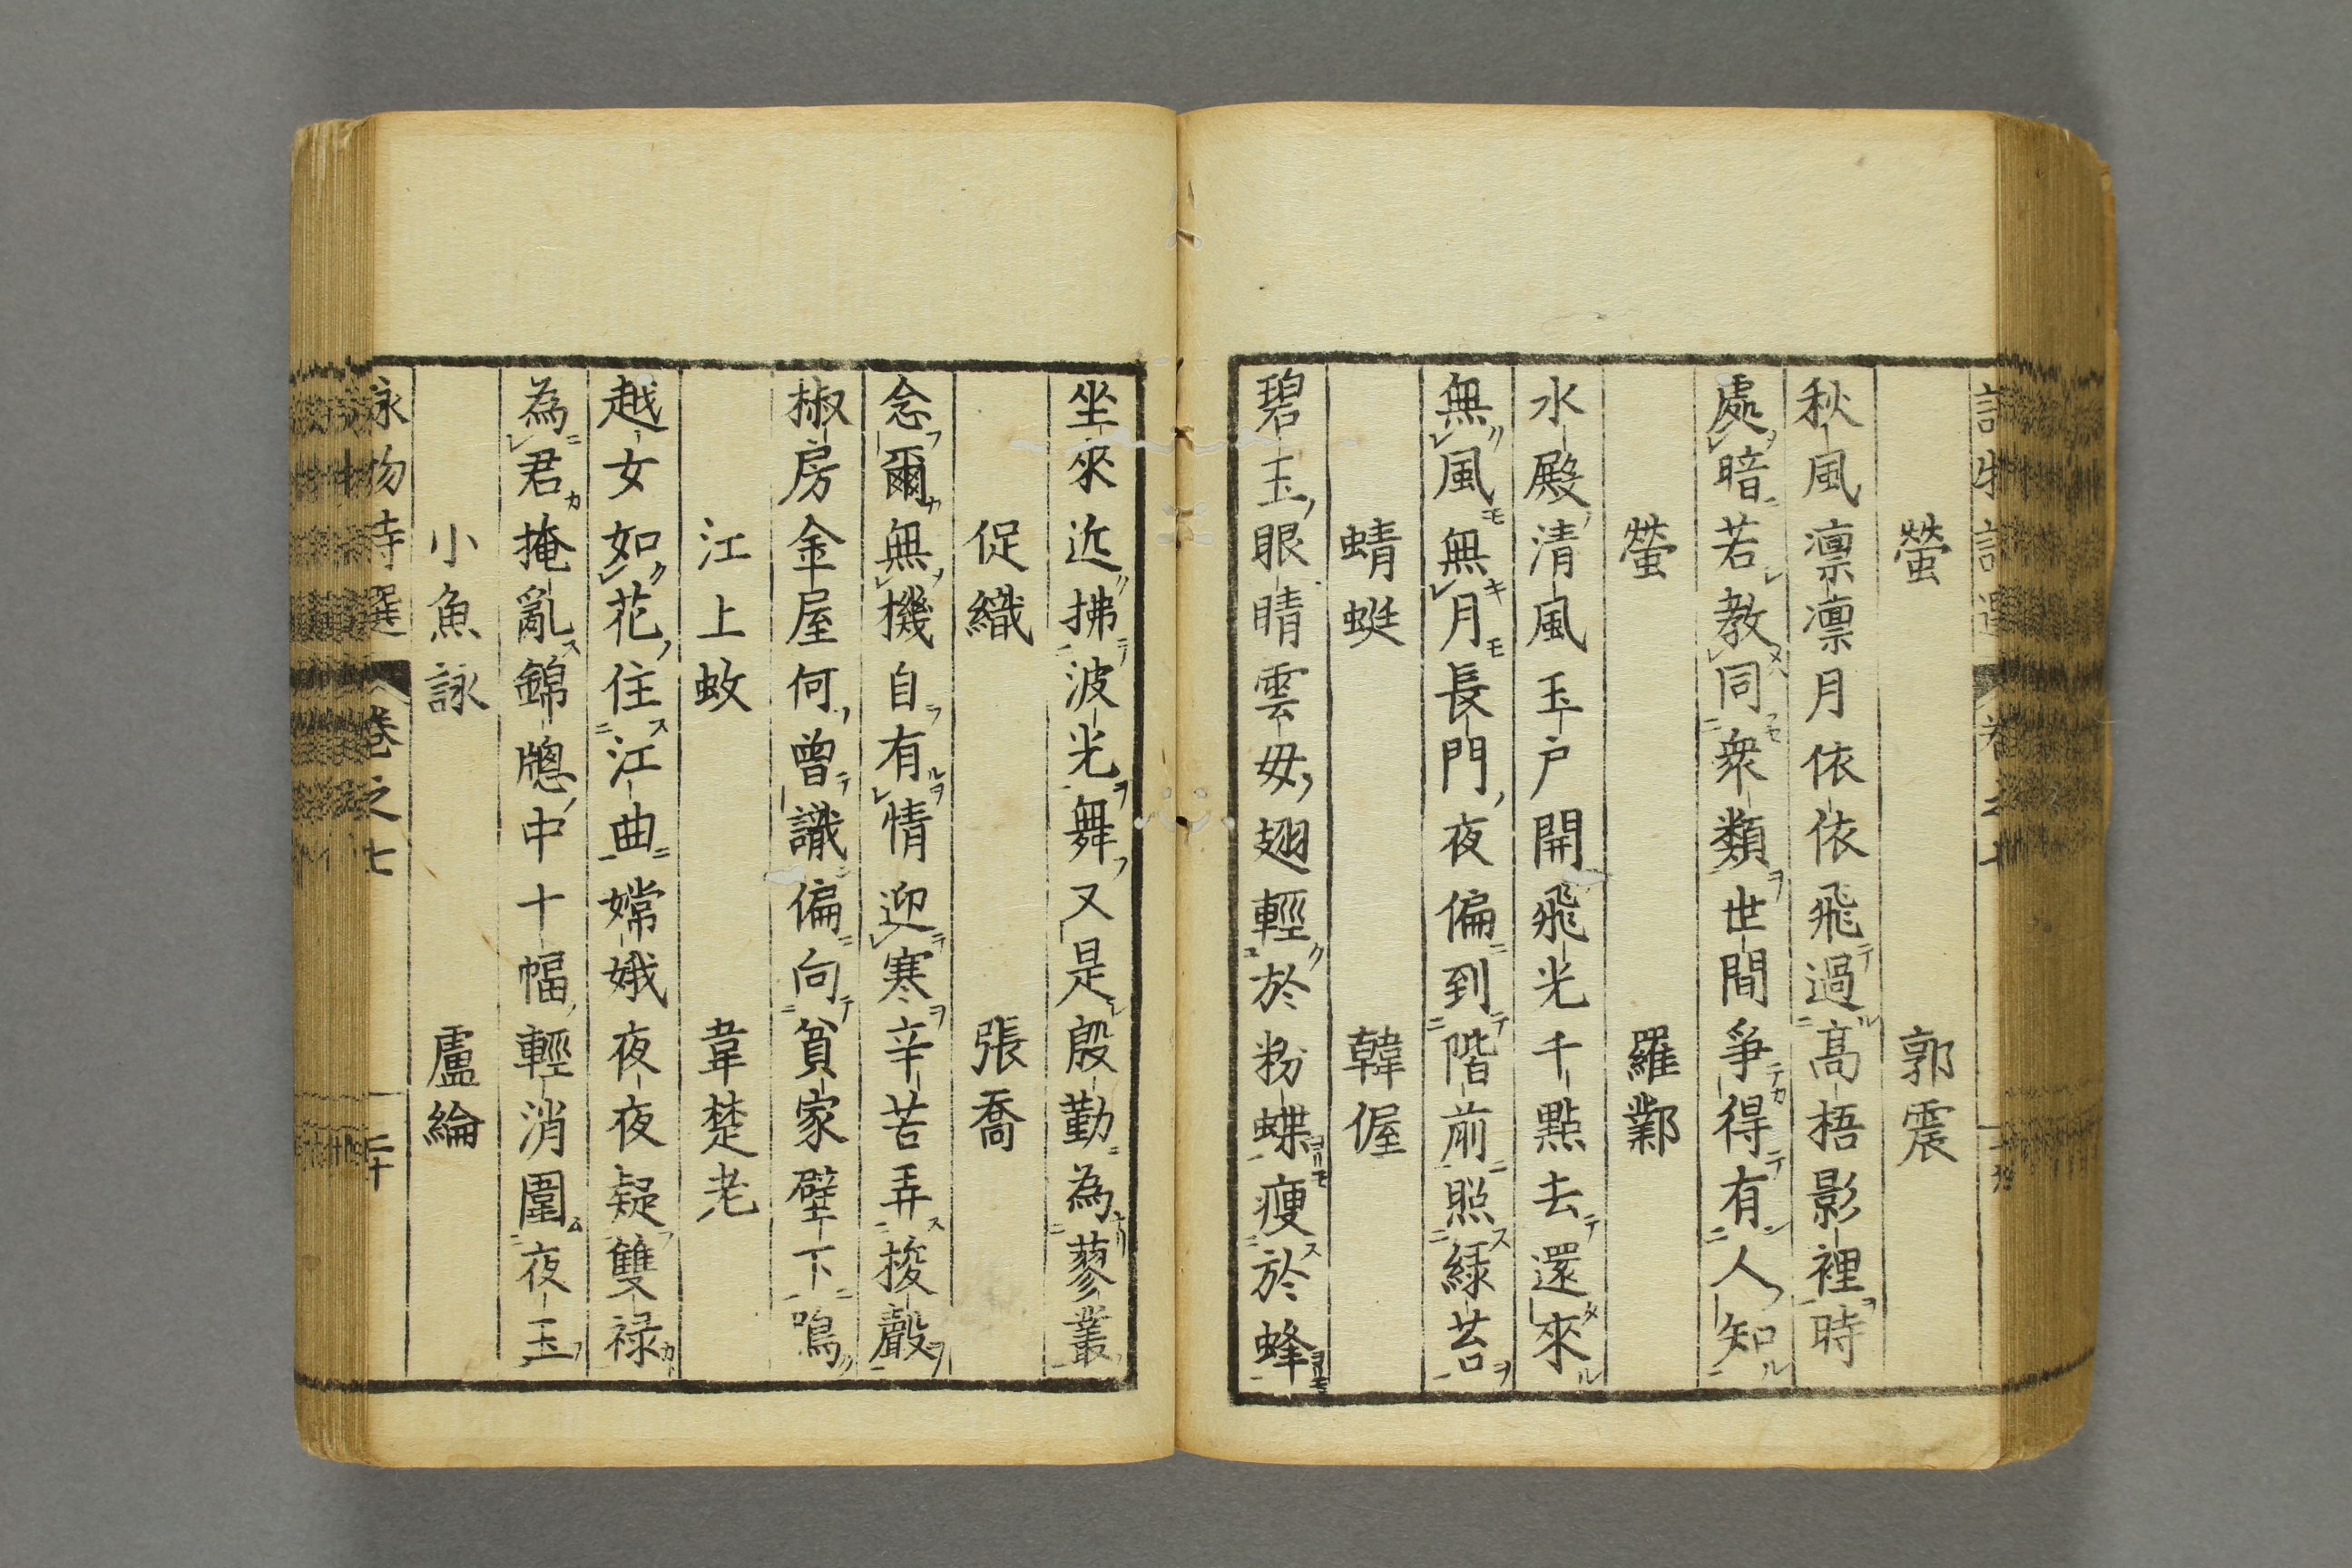 螢 郭震
秋風凛凛月依依飛過高梧影裡時
處暗若教同衆類世間爭得有人知
螢 羅鄴
水殿清風玉戸開飛光千點去還來
無風無月長門夜偏到階前照緑苔
蜻蜓 韓偓
碧玉眼睛雲母翅輕於粉蝶瘦於蜂
坐來近拂波光舞又是殷勤為蓼叢
促織 張喬
念爾無機自有情迎寒辛苦弄梭聲
椒房金屋何曾識偏向貧家壁下鳴
江上蚊 韋楚老
越女如花住江曲嫦娥夜夜疑雙禄
為君掩亂錦牎中十幅輕消圍夜玉
小魚詠 盧綸
詠物詩選 卷之七 二十